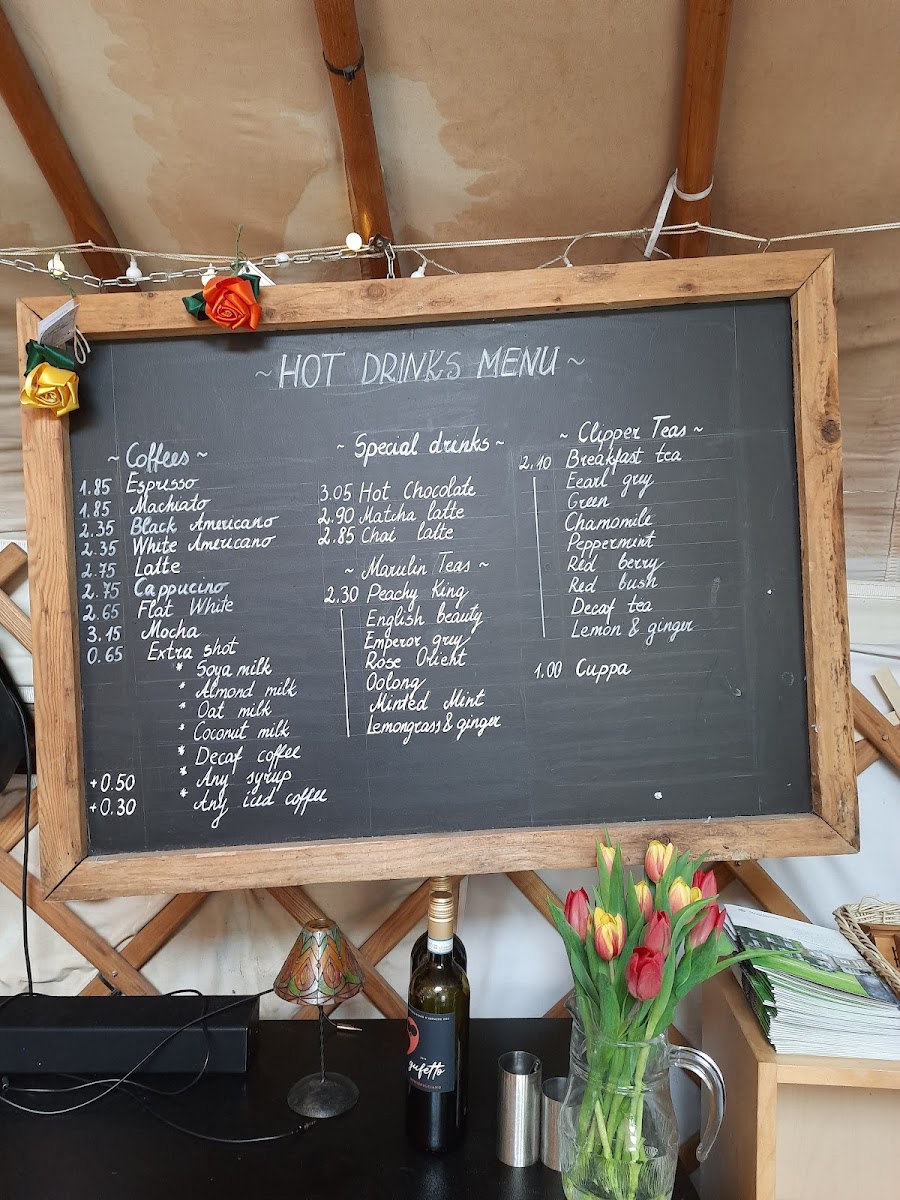 ~ HOT DRINKS MENU ~
~ Coffees ~
1.85 Espresso
1.85 Machiato
2.35 Black Americano
2.35 White Americano
2.75 Latte
2.75 Cappucino
2.65 Flat White
3.15 Mocha
0.65 Extra shot
* Soya milk
* Almond milk
* Oat milk
* Coconut milk
* Decaf coffee
+0.50 * Any syrup
+0.30 * Any iced coffee
~ Special drinks ~
3.05 Hot Chocolate
2.90 Matcha latte
2.85 Chai latte
~ Marulin Teas ~
2.30 Peachy King
English beauty
Emperor grey
Rose Orient
Oolong
Minted Mint
Lemongrass & ginger
~ Clipper Teas ~
2.10 Breakfast tea
Eearl grey
Green
Chamomile
Peppermint
Red berry
Red bush
Decaf tea
Lemon & ginger
1.00 Cuppa
gufetto